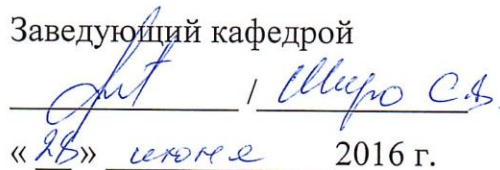 Заведующий кафедрой
/ Широ С.В.
«28» июня 2016 г.